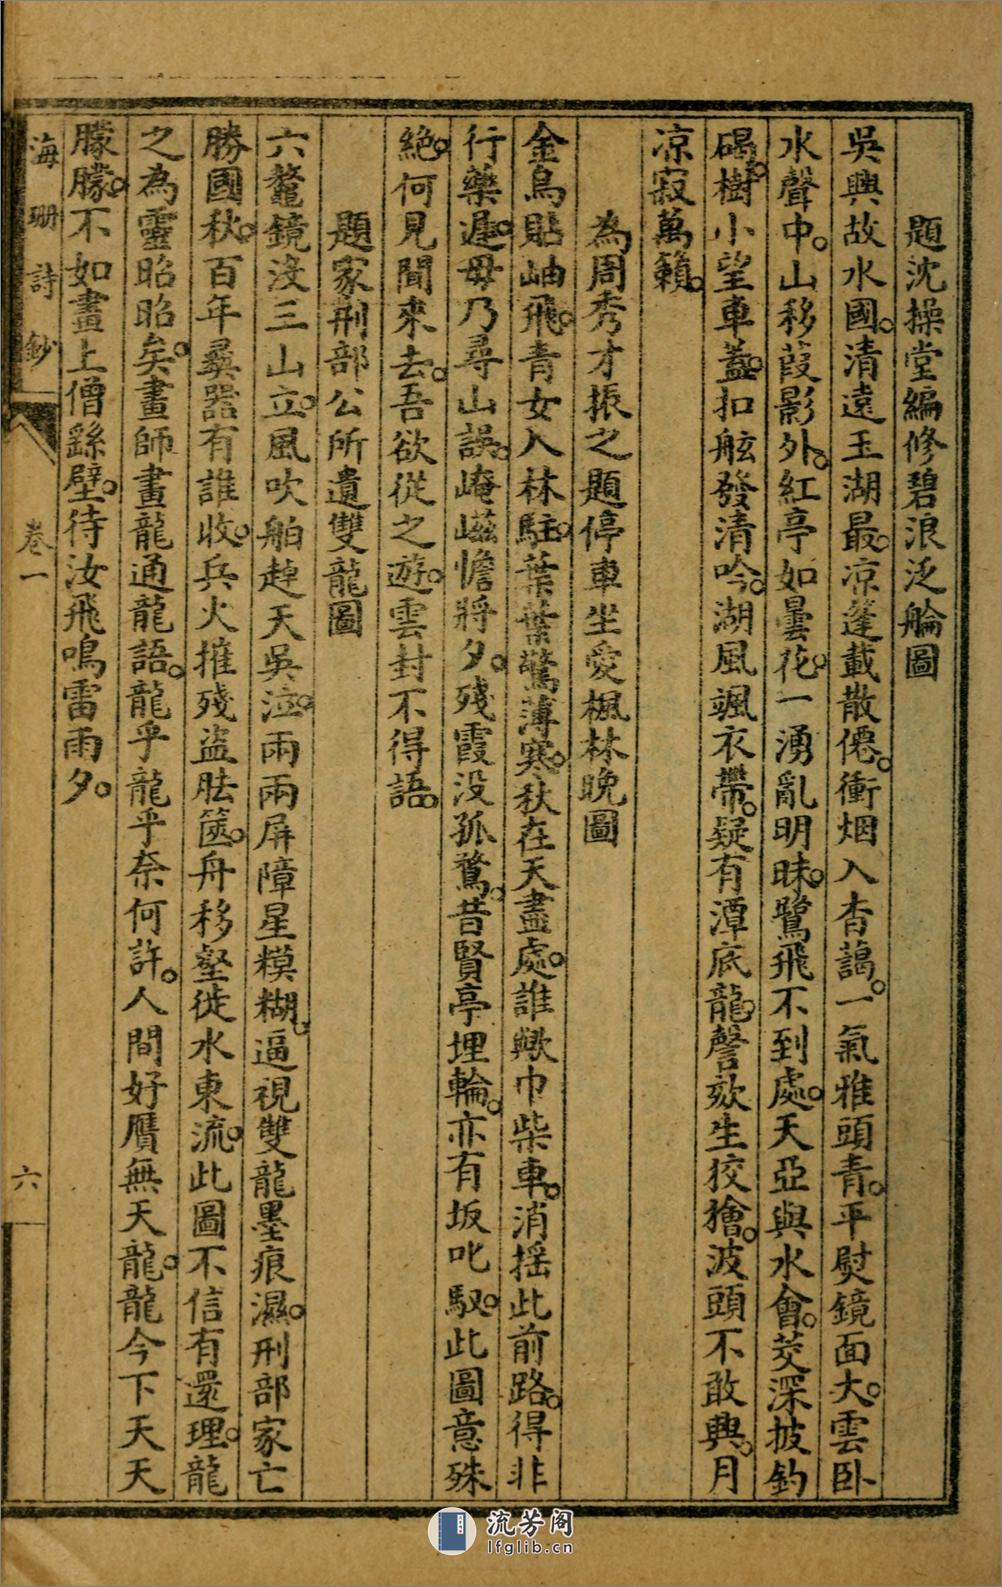 題沈操堂編修碧浪泛舲圖
吳興故水國。清遠玉湖最。凉蓬載散僊。衝烟入杳藹。一氣雅頭青。平熨鏡面大。雲卧
水聲中。山移葭影外。紅亭如曇花。一湧亂明昧。鷺飛不到處。天亞與水會。茭深披釣
碣。樹小望車蓋。扣舷發清吟。湖風颯衣帶。疑有潭底龍。謦欬生狡獪。波頭不敢興。月
凉寂萬籟。
為周秀才振之題停車坐愛楓林晚圖
金烏貼岫飛。青女入林駐。葉葉驚薄寒。秋在天盡處。誰歟巾柴車。消摇此前路。得非
行藥遲。毋乃尋山誤。崦嵫憺將夕。殘霞没孤鶩。昔賢亭埋輪。亦有坂叱馭。此圖意殊
絶。何見聞來去。吾欲從之遊。雲封不得語。
題家刑部公所遺雙龍圖
六鰲鏡没三山立。風吹舶趠天吳泣。兩兩屏障星糢糊。逼視雙龍墨痕濕。刑部家亡
勝國秋。百年彞器有誰收。兵火摧殘盜胠篋。舟移壑徙水東流。此圖不信有還理。龍
之為靈昭昭矣。畫師畫龍通龍語。龍乎龍乎奈何許。人間好贋無天龍。龍今下天天
朦朦。不如畫上僧繇壁。待汝飛鳴雷雨夕。
海珊詩鈔
卷一
六
流芳阁
lfglib.cn